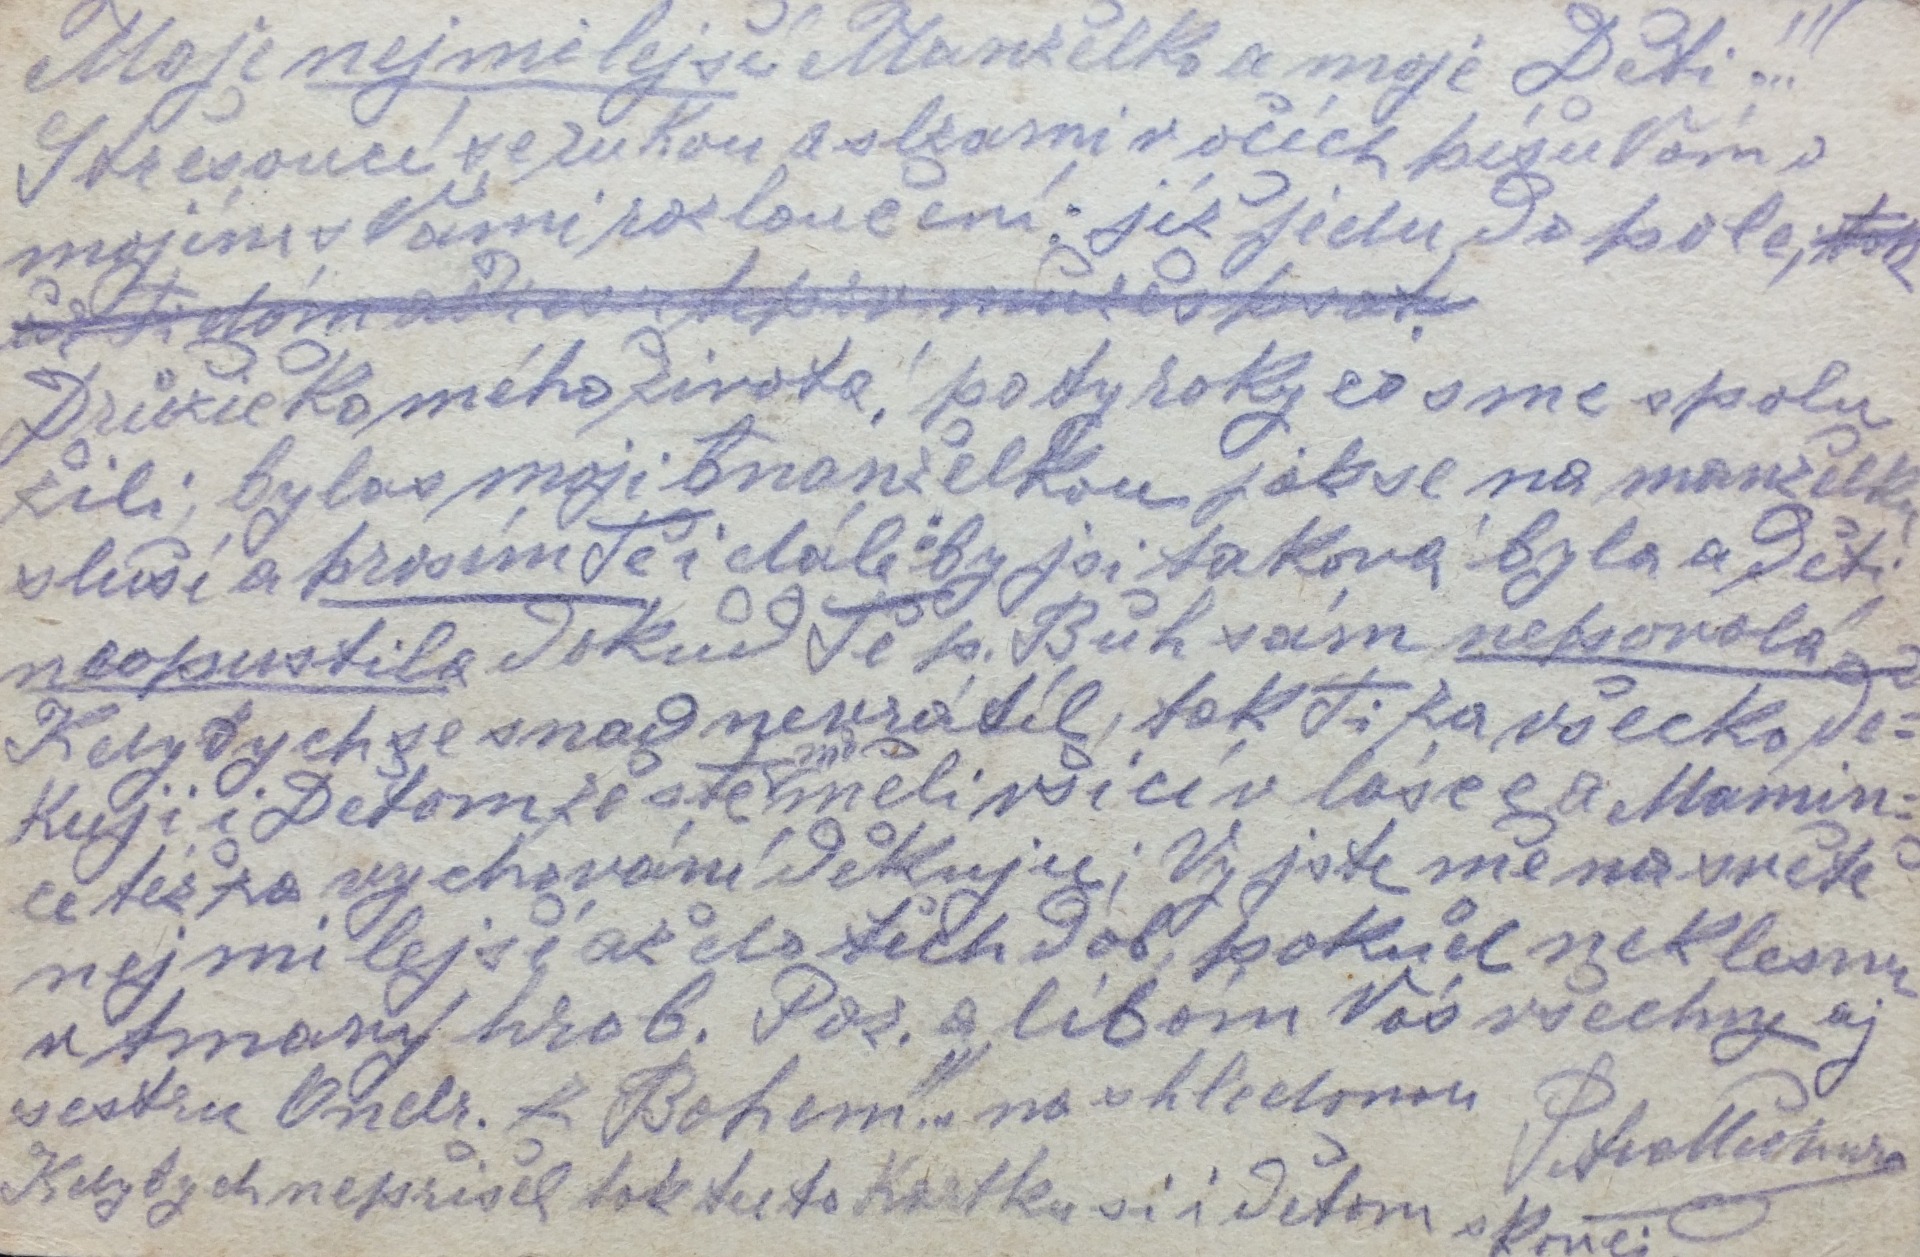 Moje nejmilejší Manželko a moje Děti...!!!
S třesoucí se rukou a slzami v očích píšu Vám o
mojím s Vámi rozloučení; již jedu do pole, tak
dom můžeš psat.
Družičko mého života, po ty roky co sme spolu
žili, bylas moji manželkou jak se na manželku
sluší a prosím Tě i dále by jsi taková byla a Děti
neopustila dokud Tě p. Bůh sám nepovolá
Kdybych se snad nevrátil, tak Ti za všecko Dě=
kuji i Dětom že ste mě měli všicí v lásce a Mamin=
ce též za vychování Děkuju; Vy jste mě na světě
nejmilejší až do těch dob, pokud neklesnu
v tmavý hrob. Poz. a líbám Vás všechny aj
sestru Ondr. z Bohem!!! na shledanou
Kdybych nepřišel tak tuto kartku si i dětom skovej